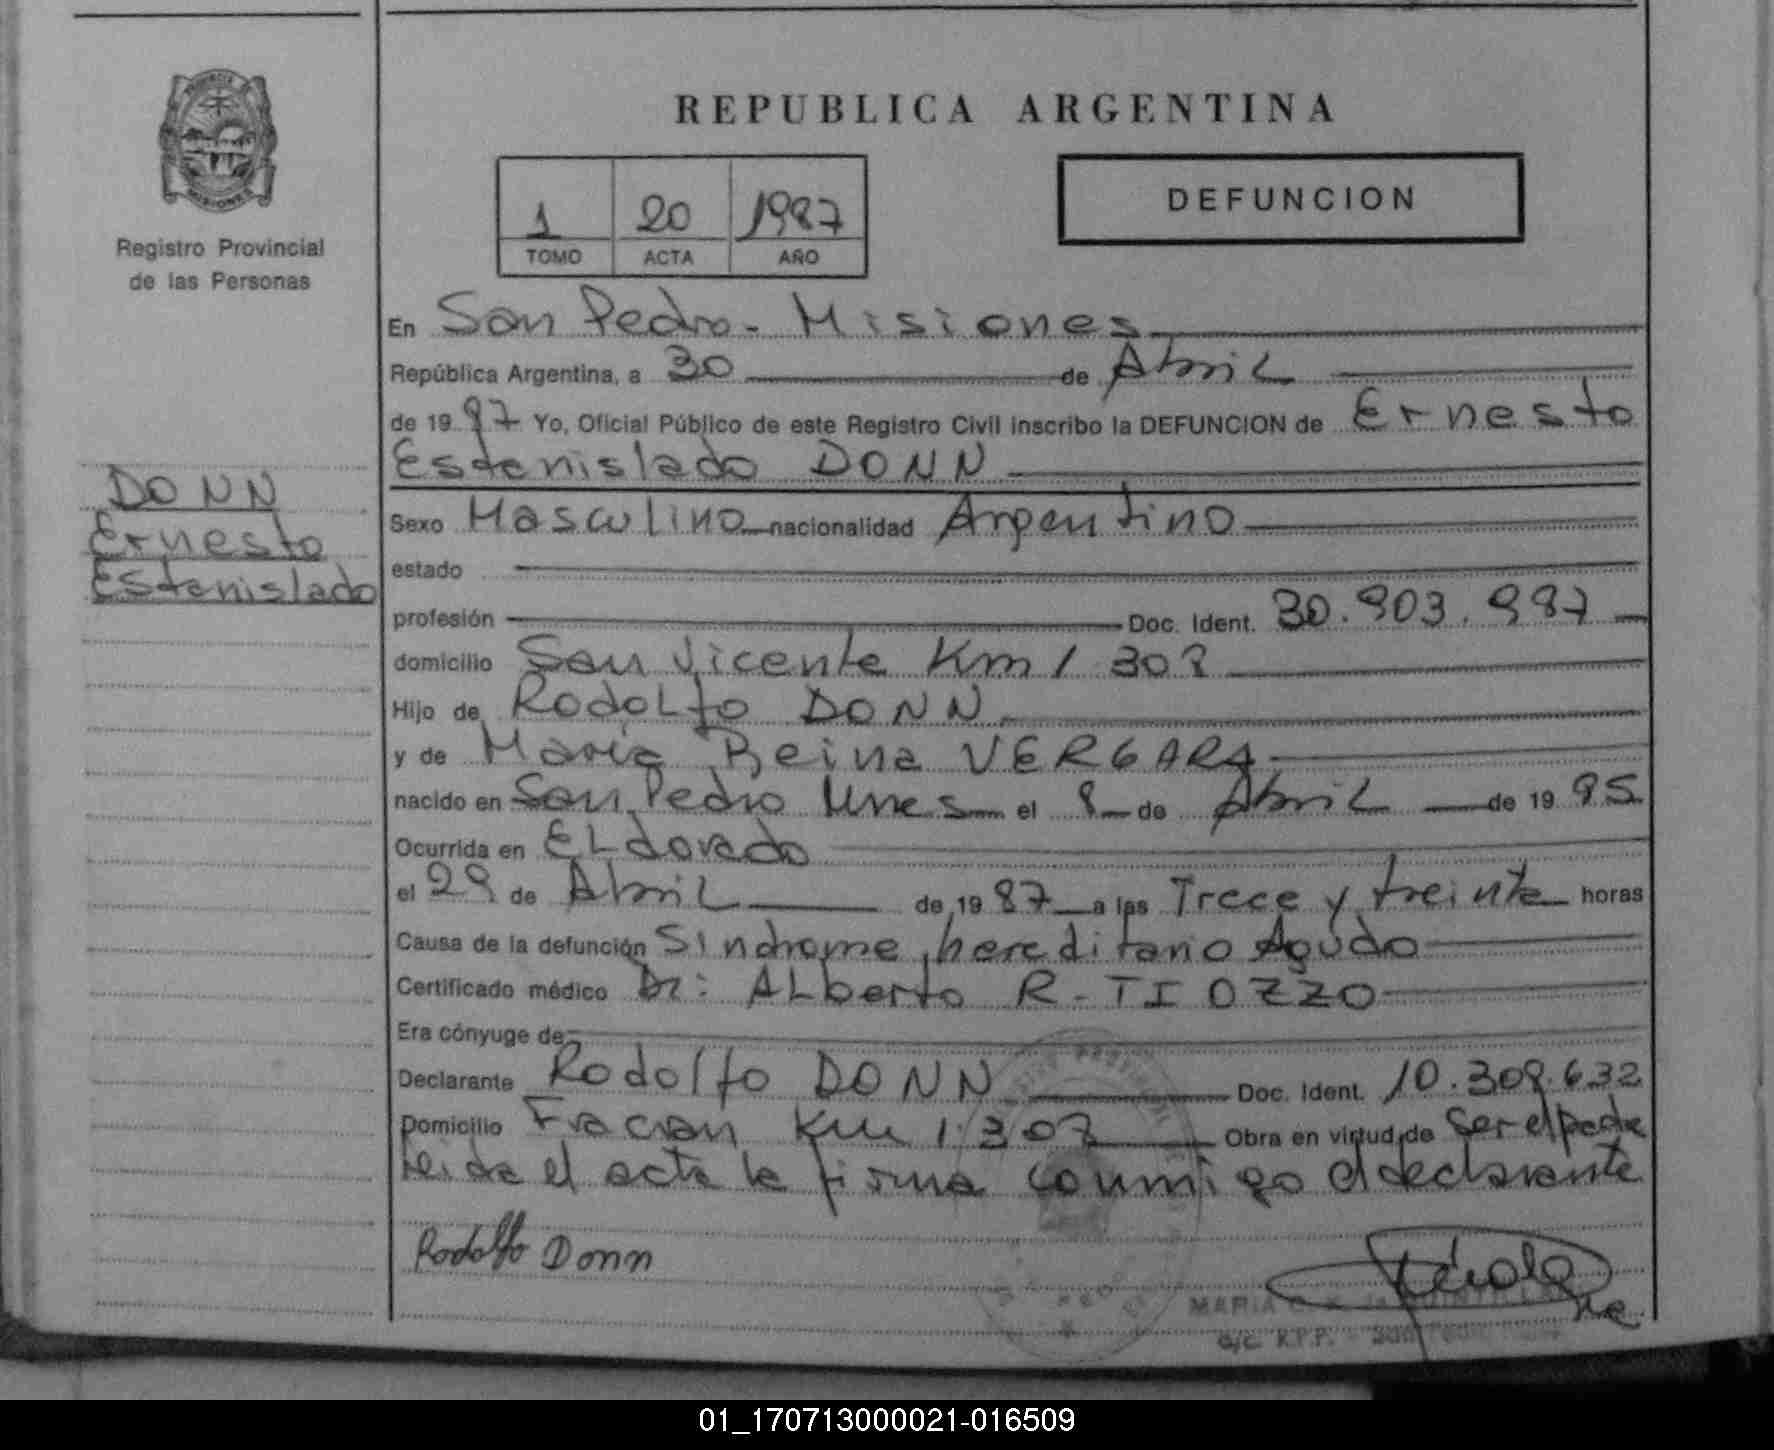 REPUBLICA ARGENTINA
PROVINCIA
MISIONES
Registro Provincial
de las Personas
1 20 1987
TOMO ACTA AÑO
DEFUNCION
DONN
Ernesto
Estenislado
En San Pedro - Misiones
República Argentina, a 30 de Abril
de 19 87 Yo, Oficial Público de este Registro Civil inscribo la DEFUNCION de Ernesto
Estenislado DONN
Sexo Masculino nacionalidad Argentino
estado
profesión Doc. Ident. 30.903.987
domicilio San Vicente Km 1 308
Hijo de Rodolfo DONN
y de María Reina VERGARA
nacido en San Pedro Mnes el 8 de Abril de 19 85
Ocurrida en ELdorado
el 29 de Abril de 19 87 a las Trece y treinta horas
Causa de la defunción Sindrome hereditario Agudo
Certificado médico Dr: ALberto R. TIOZZO
Era cónyuge de
Declarante Rodolfo DONN Doc. Ident. 10.308.632
Domicilio Fracran Km 1.307 Obra en virtud de Ser el padre
leida el acta la firma conmigo el declarante
Rodolfo Donn
MARIA
R.P.P.
01_170713000021-016509